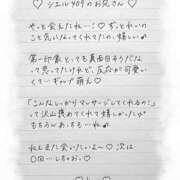 ♡ シエル409のお兄さん ♡
やっと会えたねー！♡ ずっとれいの
こと気になってくれてたの、嬉しい
第一印象とっても真面目そうだな
って思ってたけど、反応が可愛い
くて…ギャップ萌え♡
「こんなしっかりマッサージしてくれるの!」
って沢山褒めてくれて嬉しかったし
また会いたいよー♡ 次は
〇回…しちゃお♡